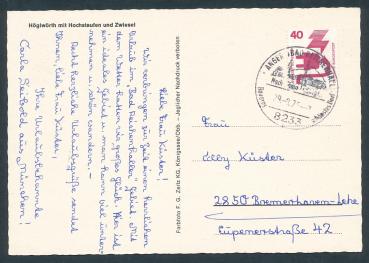 Höglwörth mit Hochstaufen und Zwiesel
Liebe Frau Küster!
Wir verbringen zur Zeit einen herrlichen
Urlaub im Bad Reichenhaller Gebiet. Mit
dem Wetter haben wir großes Glück. Hier ist
ein ideales Gebiet u. man kann viel unter-
nehmen u. schön wandern. –
Recht herzliche Urlaubsgrüße sendet
Ihnen, liebe Frau Küster,
Ihre Urlaubsbekannte
Carla aus München!
Farbfoto F. G. Zeitz KG, Königssee/Obb. Jeglicher Nachdruck verboten
40
ANGER
BAD
8233
Frau
Elly Küster
2850 Bremerhaven-Lehe
Eupenerstraße 42